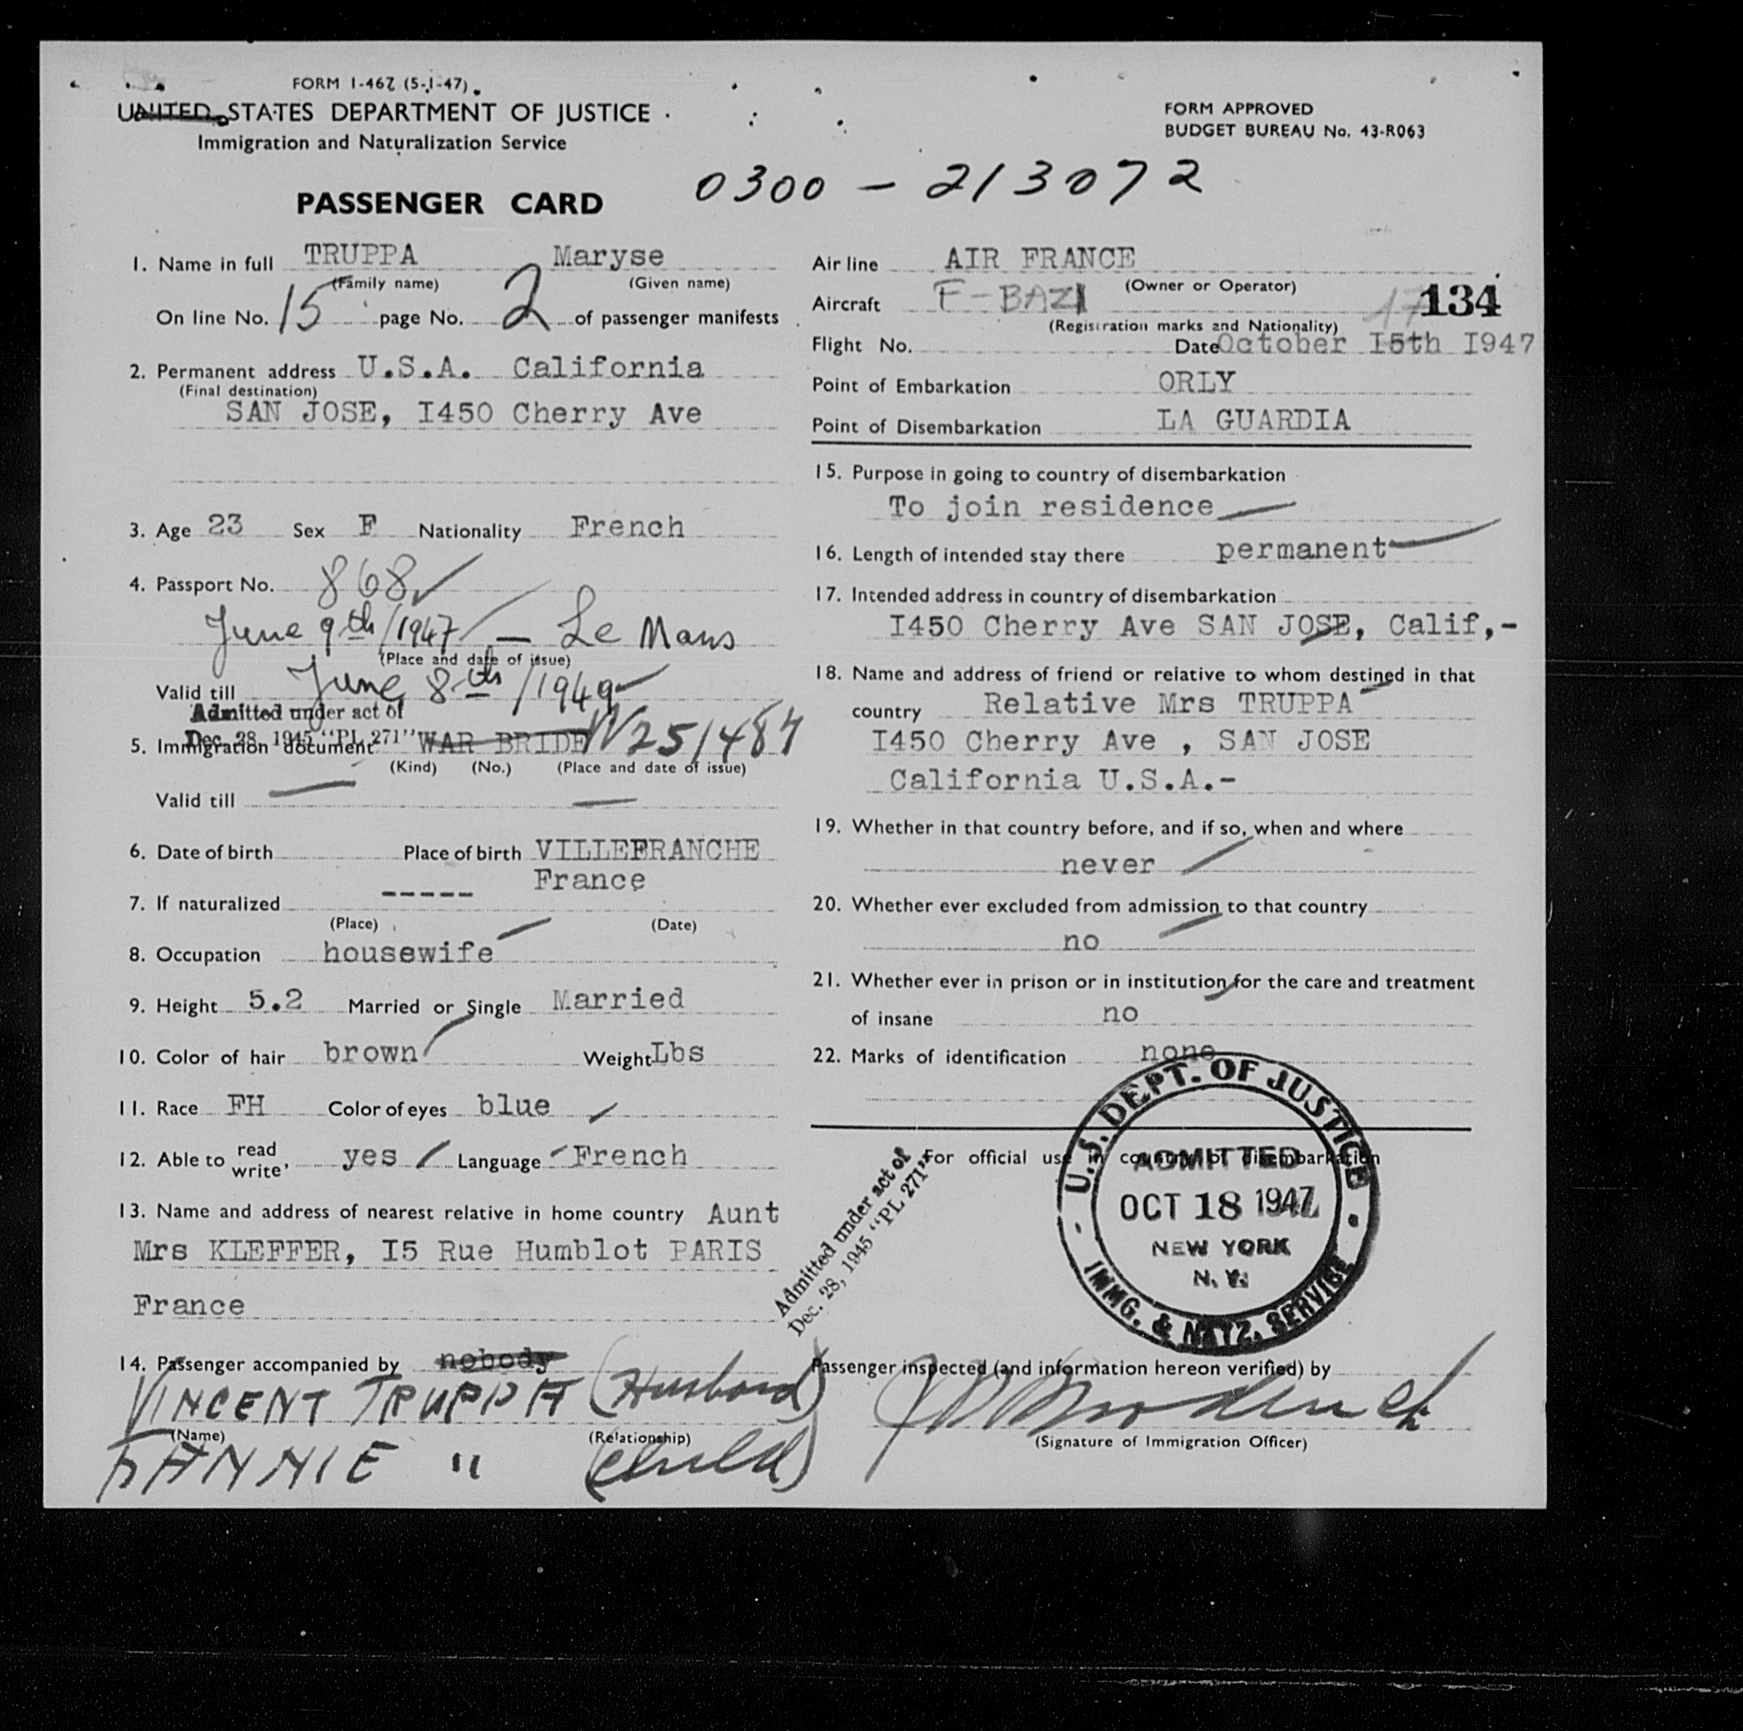 FORM I-467 (5-1-47)
UNITED STATES DEPARTMENT OF JUSTICE
Immigration and Naturalization Service
FORM APPROVED
BUDGET BUREAU No. 43-R063
PASSENGER CARD
0300 - 213072
1. Name in full TRUPPA Maryse
(Family name) (Given name)
On line No. 15 page No. 2 of passenger manifests
2. Permanent address U.S.A. California
(Final destination)
SAN JOSE, I450 Cherry Ave
3. Age 23 Sex F Nationality French
4. Passport No. 868
June 9th/1947 - Le Mans
(Place and date of issue)
Valid till June 8th/1949
Admitted under act of
Dec. 28, 1945 "PL 271"
5. Immigration document WAR BRIDE W251487
(Kind) (No.) (Place and date of issue)
Valid till
6. Date of birth Place of birth VILLEFRANCHE
France
7. If naturalized -----
(Place) (Date)
8. Occupation housewife
9. Height 5.2 Married or Single Married
10. Color of hair brown Weight Lbs
11. Race FH Color of eyes blue
12. Able to read write, yes Language French
13. Name and address of nearest relative in home country Aunt
Mrs KIEFFER, I5 Rue Humblot PARIS
France
14. Passenger accompanied by nobody
VINCENT TRUPPA (Husband)
(Name) (Relationship)
FANNIE " (child)
Air line AIR FRANCE
(Owner or Operator)
Aircraft F-BAZI
134
(Registration marks and Nationality)
Flight No. Date October I5th I947
Point of Embarkation ORLY
Point of Disembarkation LA GUARDIA
15. Purpose in going to country of disembarkation
To join residence
16. Length of intended stay there permanent
17. Intended address in country of disembarkation
I450 Cherry Ave SAN JOSE, Calif,-
18. Name and address of friend or relative to whom destined in that
country Relative Mrs TRUPPA
I450 Cherry Ave , SAN JOSE
California U.S.A.-
19. Whether in that country before, and if so, when and where
never
20. Whether ever excluded from admission to that country
no
21. Whether ever in prison or in institution for the care and treatment
of insane no
22. Marks of identification none
For official use in country of disembarkation
Admitted under act of
Dec. 28, 1945 "PL 271"
U.S. DEPT. OF JUSTICE
ADMITTED
OCT 18 1947
NEW YORK
N. Y.
IMMG. & NATZ. SERVICE
Passenger inspected (and information hereon verified) by
(Signature of Immigration Officer)